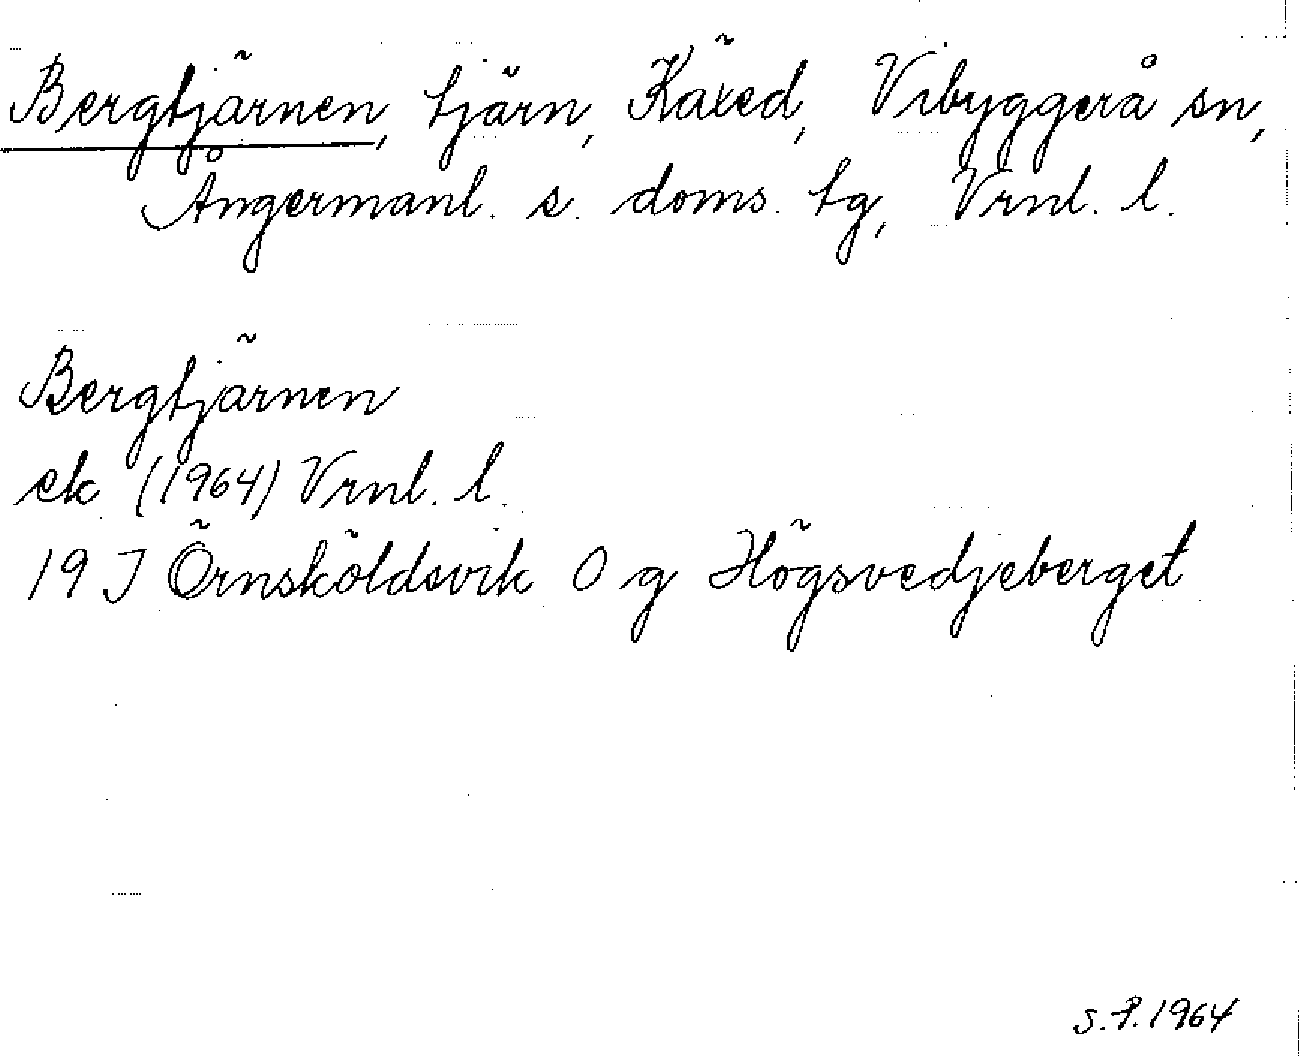 Bergtjärnen, tjärn, Käxed, Vibyggerå sn,
Ångermanl. s. doms. tg, Vrnl. l.
Bergtjärnen
ek (1964) Vrnl. l.
19 J Örnsköldsvik 0 g Högsvedjeberget
S.P. 1964